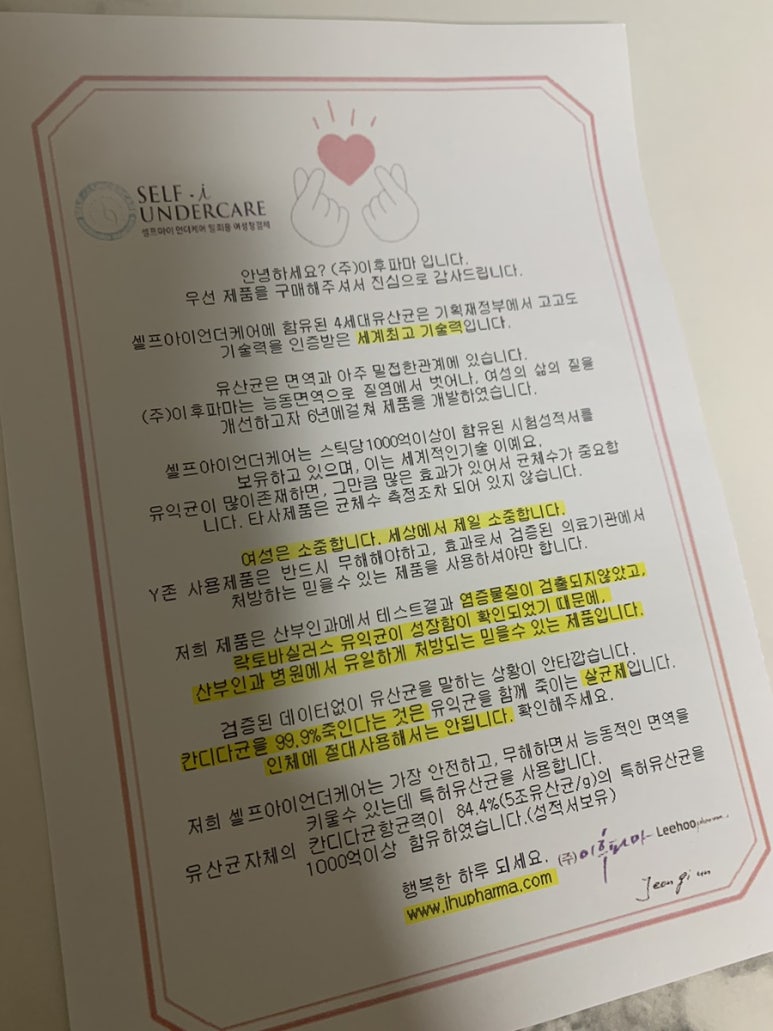 SELF · i
UNDERCARE
셀프아이 언더케어 일회용 여성청결제
안녕하세요? (주)이후파마 입니다.
우선 제품을 구매해주셔서 진심으로 감사드립니다.
셀프아이언더케어에 함유된 4세대유산균은 기획재정부에서 고고도
기술력을 인증받은 세계최고 기술력입니다.
유산균은 면역과 아주 밀접한관계에 있습니다.
(주)이후파마는 능동면역으로 질염에서 벗어나, 여성의 삶의 질을
개선하고자 6년에걸쳐 제품을 개발하였습니다.
셀프아이언더케어는 스틱당1000억이상이 함유된 시험성적서를
보유하고 있으며, 이는 세계적인기술 이예요.
유익균이 많이존재하면, 그만큼 많은 효과가 있어서 균체수가 중요합
니다. 타사제품은 균체수 측정조차 되어 있지 않습니다.
여성은 소중합니다. 세상에서 제일 소중합니다.
Y존 사용제품은 반드시 무해해야하고, 효과로서 검증된 의료기관에서
처방하는 믿을수 있는 제품을 사용하셔야만 합니다.
저희 제품은 산부인과에서 테스트결과 염증물질이 검출되지않았고,
락토바실러스 유익균이 성장함이 확인되었기 때문에,
산부인과 병원에서 유일하게 처방되는 믿을수 있는 제품입니다.
검증된 데이터없이 유산균을 말하는 상황이 안타깝습니다.
칸디다균을 99.9%죽인다는 것은 유익균을 함께 죽이는 살균제입니다.
인체에 절대사용해서는 안됩니다. 확인해주세요.
저희 셀프아이언더케어는 가장 안전하고, 무해하면서 능동적인 면역을
키울수 있는데 특허유산균을 사용합니다.
유산균자체의 칸디다균항균력이 84.4%(5조유산균/g)의 특허유산균을
1000억이상 함유하였습니다.(성적서보유)
행복한 하루 되세요. (주)이후파마 Leehoo pharma
www.ihupharma.com